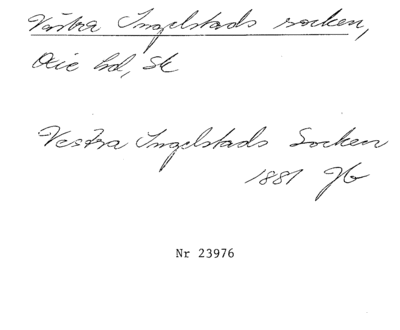 Västra Ingelstads socken,
Oxie hd, Sk
Vestra Ingelstads Socken
1881 Jb
Nr 23976